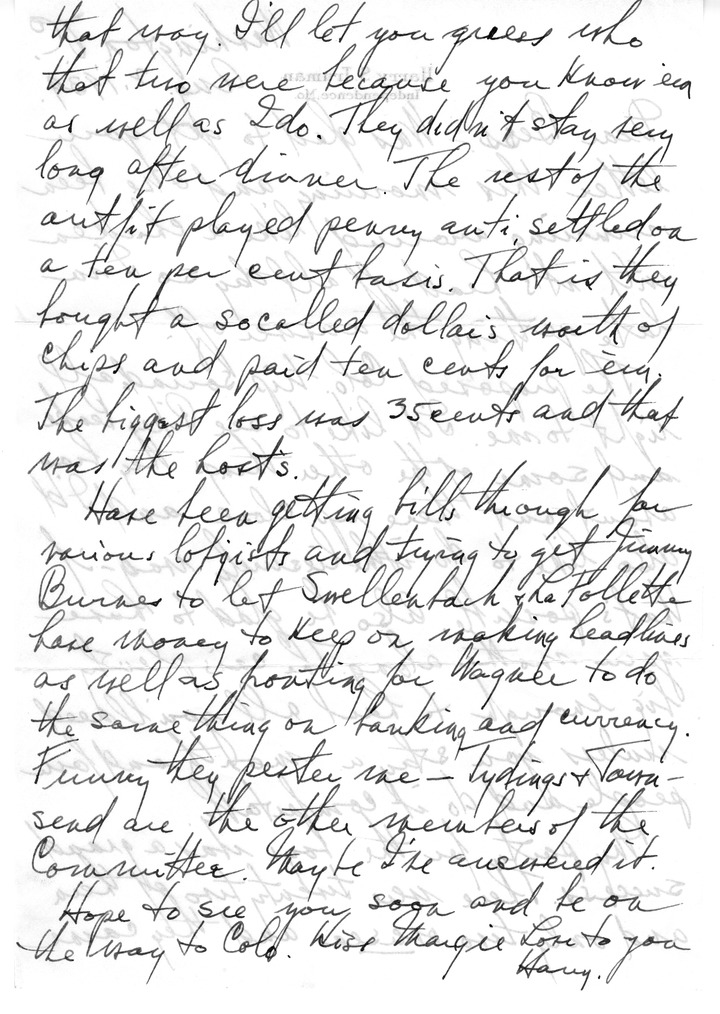 that way. I'll let you guess who
that two were because you know 'em
as well as I do. They didn't stay very
long after dinner. The rest of the
outfit played penny anti, settled on
a ten per cent basis. That is they
bought a socalled dollar's worth of
chips and paid ten cents for 'em.
The biggest loss was 35 cents and that
was the host's.
Have been getting bills through for
various lobyists and trying to get Jimmy
Burnes to let Swellenbach & La Follette
have money to keep on making headlines
as well as fronting for Wagner to do
the same thing on banking and currency.
Funny they pester me - Tydings & Town-
send are the other members of the
Committee. Maybe I've answered it.
Hope to see you soon and be on
the way to Colo. Kiss Margie Love to you
Harry.
Harry S. Truman
Independence, Mo.